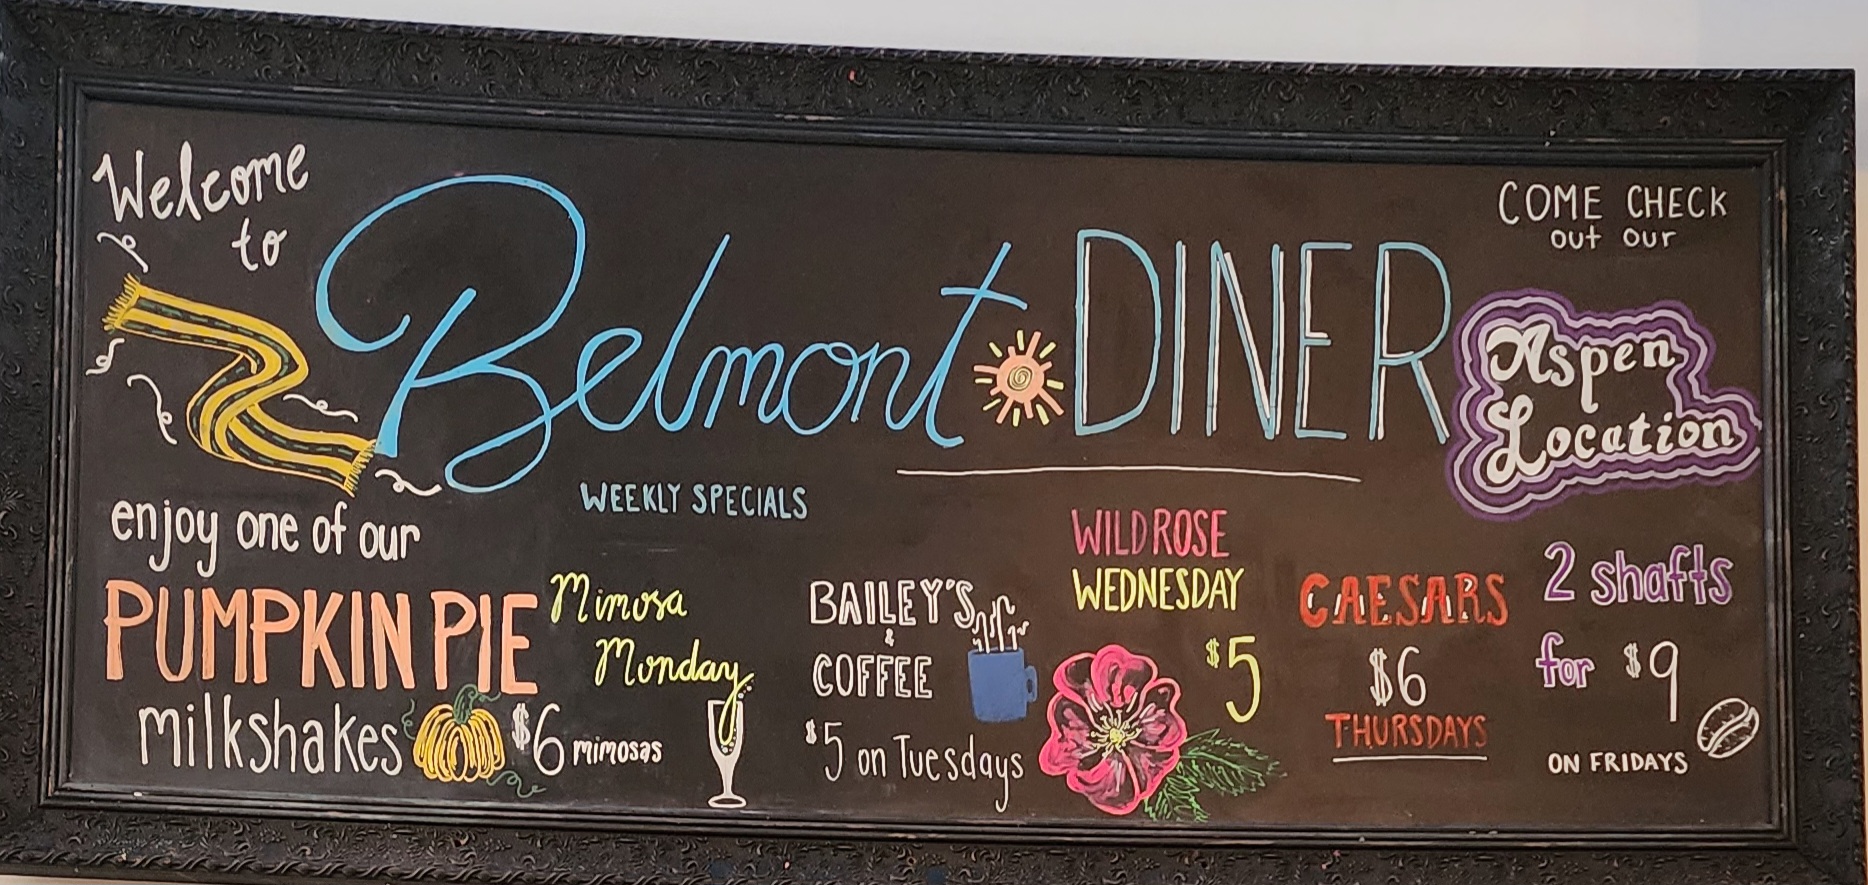 Welcome
to
Belmont DINER
COME CHECK
out our
Aspen
Location
WEEKLY SPECIALS
enjoy one of our
PUMPKIN PIE
milkshakes
Mimosa
Monday
$6 mimosas
BAILEY'S
&
COFFEE
$5 on Tuesdays
WILD ROSE
WEDNESDAY
$5
CAESARS
$6
THURSDAYS
2 shafts
for $9
ON FRIDAYS